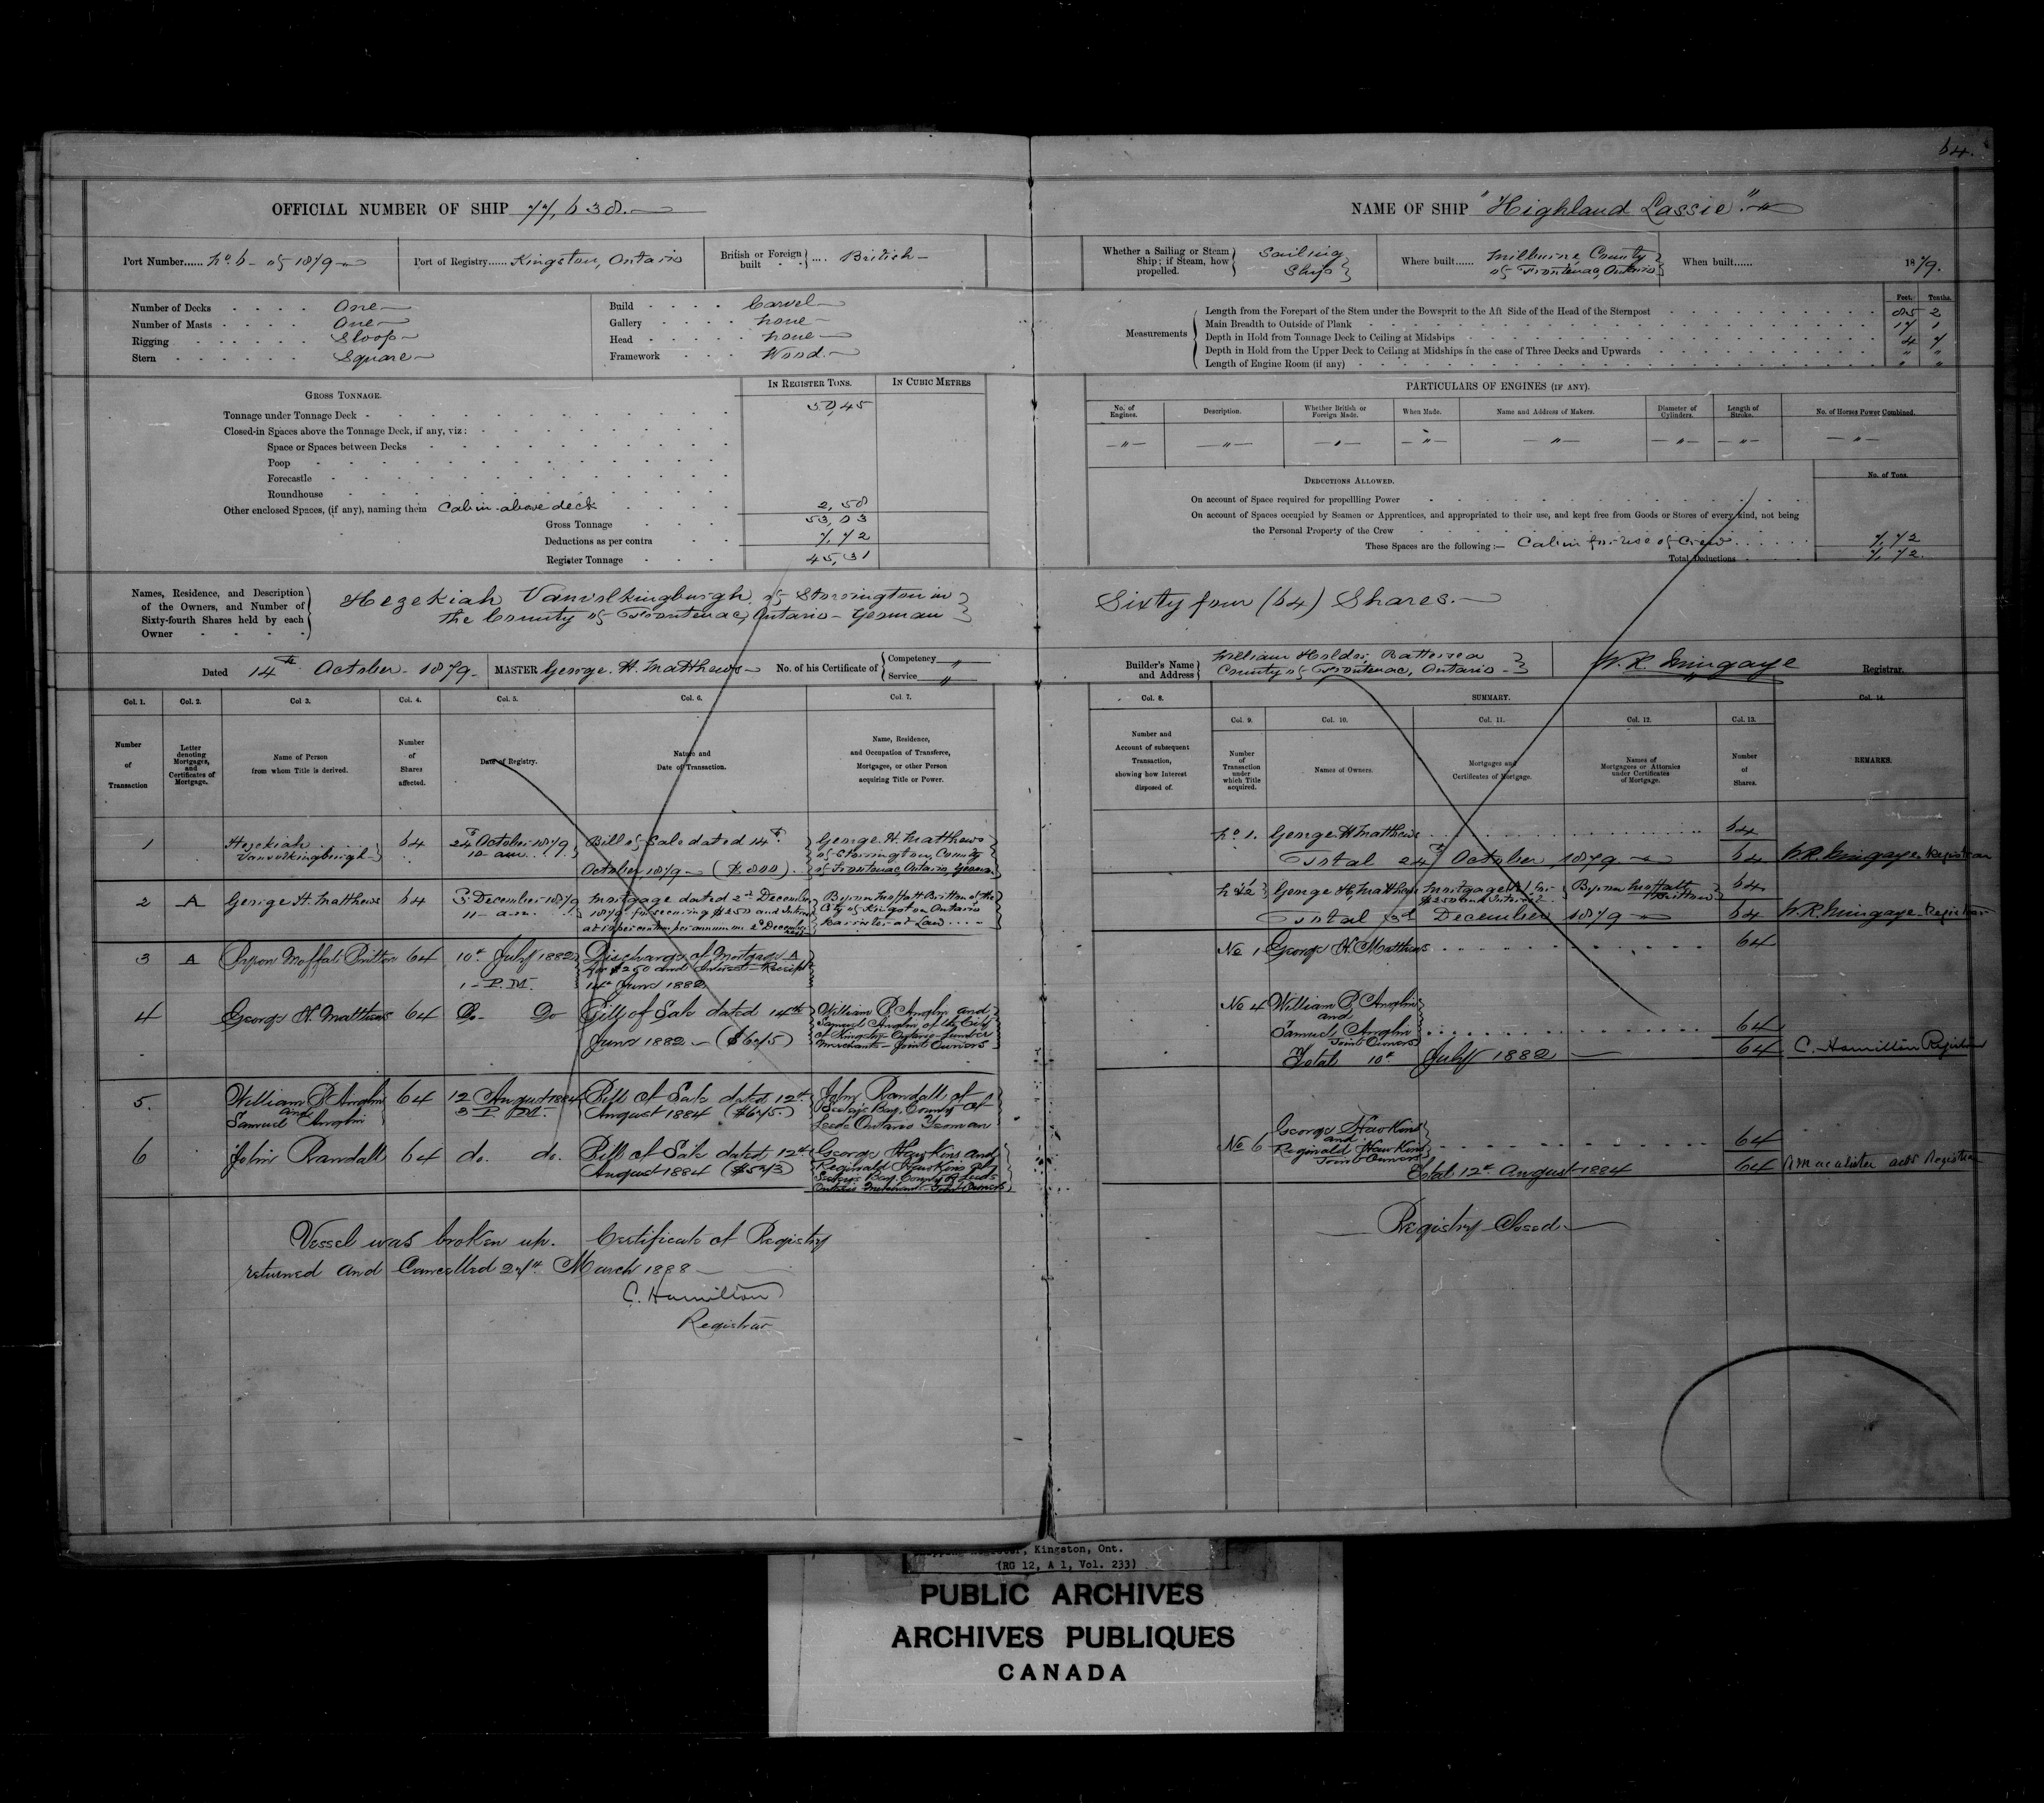 64.
OFFICIAL NUMBER OF SHIP 77,638.
NAME OF SHIP "Highland Lassie".
Port Number...... No. 6 - of 1879
Port of Registry...... Kingston, Ontario
British or Foreign built .... British
Whether a Sailing or Steam Ship; if Steam, how propelled. Sailing Ship
Where built...... Milburne, County of Frontenac, Ontario
When built...... 1879.
Number of Decks One
Number of Masts One
Rigging Sloop
Stern Square
Build Carvel
Gallery None
Head None
Framework Wood.
Measurements
Feet. Tenths.
Length from the Forepart of the Stem under the Bowsprit to the Aft Side of the Head of the Sternpost 85 2
Main Breadth to Outside of Plank 17 1
Depth in Hold from Tonnage Deck to Ceiling at Midships 4 7
Depth in Hold from the Upper Deck to Ceiling at Midships in the case of Three Decks and Upwards " "
Length of Engine Room (if any) " "
GROSS TONNAGE.
IN REGISTER TONS.
IN CUBIC METRES
Tonnage under Tonnage Deck 50,45
Closed-in Spaces above the Tonnage Deck, if any, viz:
Space or Spaces between Decks
Poop
Forecastle
Roundhouse
Other enclosed Spaces, (if any), naming them Cabin above deck 2,58
Gross Tonnage 53,03
Deductions as per contra 7,72
Register Tonnage 45,31
PARTICULARS OF ENGINES (IF ANY).
No. of Engines. Description. Whether British or Foreign Made. When Made. Name and Address of Makers. Diameter of Cylinders. Length of Stroke. No. of Horses Power Combined.
— " — — " — — " — — " — — " — — " — — " — — " —
DEDUCTIONS ALLOWED.
No. of Tons.
On account of Space required for propellling Power
On account of Spaces occupied by Seamen or Apprentices, and appropriated to their use, and kept free from Goods or Stores of every kind, not being
the Personal Property of the Crew
These Spaces are the following:— Cabin for use of Crew 7,72
Total Deductions 7,72.
Names, Residence, and Description of the Owners, and Number of Sixty-fourth Shares held by each Owner
Hezekiah Vanvolkingburgh of Storrington in
the County of Frontenac, Ontario - Yeoman
Sixty four (64) Shares.
Dated 14th October - 1879
MASTER George H. Matthews
No. of his Certificate of Competency " Service "
Builder's Name and Address William Holder, Battersea
County of Frontenac, Ontario
W. R. Mingaye Registrar.
Col. 1. Col. 2. Col 3. Col. 4. Col. 5. Col. 6. Col. 7.
Number of Transaction
Letter denoting Mortgages, and Certificates of Mortgage.
Name of Person from whom Title is derived.
Number of Shares affected.
Date of Registry.
Nature and Date of Transaction.
Name, Residence, and Occupation of Transferee, Mortgagee, or other Person acquiring Title or Power.
Col. 8. SUMMARY. Col. 14.
Col. 9. Col. 10. Col. 11. Col. 12. Col. 13.
Number and Account of subsequent Transaction, showing how Interest disposed of.
Number of Transaction under which Title acquired.
Names of Owners.
Mortgages and Certificates of Mortgage.
Names of Mortgagees or Attornies under Certificates of Mortgage.
Number of Shares.
REMARKS.
1 Hezekiah Vanvolkingburgh 64 24th October 1879 10 a.m. Bill of Sale dated 14th October, 1879 ($800). George H. Matthews of Storrington, County of Frontenac, Ontario, Yeoman
No. 1. George H Matthews 64
Total 24th October, 1879 64 W.R. Mingaye Registrar
2 A George H. Matthews 64 3d December 1879 11 a.m. Mortgage dated 2d December 1879 for securing $250 and Interest at 10 per centum per annum on 2d December Byron Moffatt Britton of the City of Kingston Ontario Barrister at Law
No. 2 George H. Matthews Mortgage A for $250 and Interest Byron Moffatt Britton 64
Total 3d December 1879 64 W.R. Mingaye Registrar
3 A Byron Moffat Britton 64 10th July 1882 1 - P.M. Discharge of Mortgage A for $250 and Interest - Receipt 14th June 1882
No 1 George H. Matthews 64
4 George H. Matthews 64 Do Do Bill of Sale dated 14th June 1882 - ($675) William B. Anglin and Samuel Anglin of the City of Kingston Ontario Lumber Merchants - Joint Owners
No 4 William B. Anglin and Samuel Anglin Joint Owners 64
Total 10th July 1882 64 C. Hamilton Registrar
5. William B. Anglin and Samuel Anglin 64 12 August 1884 3 P.M. Bill of Sale dated 12th August 1884 ($675) John Randall of Seeley's Bay, County of Leeds Ontario Yeoman
6 John Randall 64 do. do. Bill of Sale dated 12th August 1884 ($573) George Hawkins and Reginald Hawkins of Seeleys Bay, County of Leeds Ontario Merchants - Joint Owners
No 6 George Hawkins and Reginald Hawkins Joint Owners 64
Total 12th August 1884 64 Registrar
Vessel was broken up. Certificate of Registry
returned and Cancelled 27th March 1888
C. Hamilton
Registrar
Registry Closed
Kingston, Ont.
(RG 12, A 1, Vol. 233)
PUBLIC ARCHIVES
ARCHIVES PUBLIQUES
CANADA